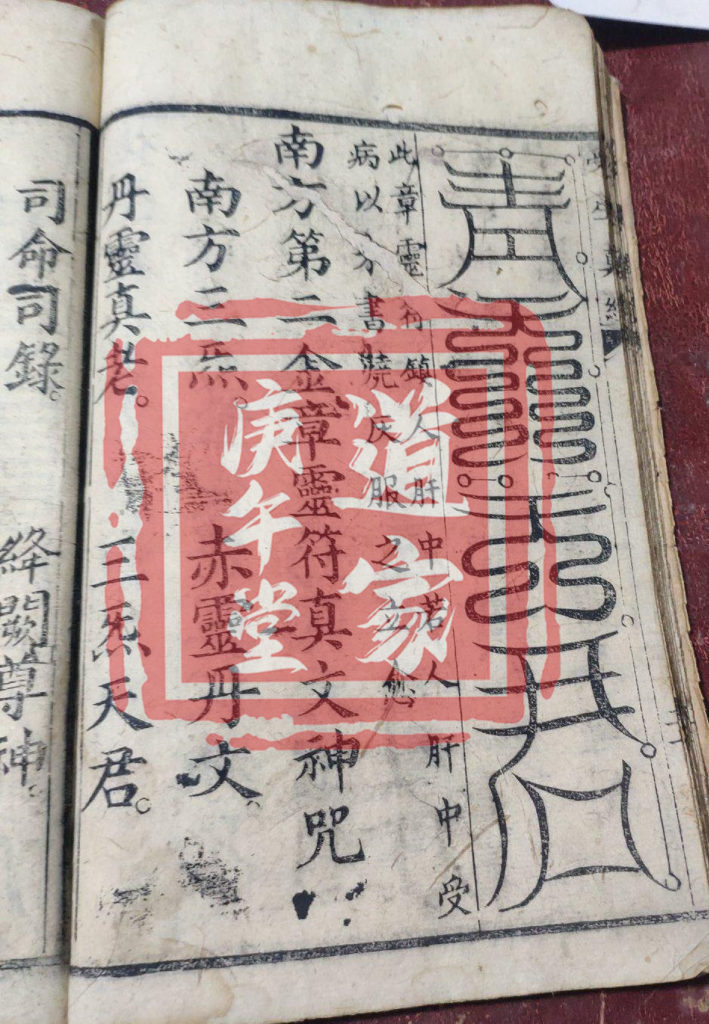 生真經
此章靈符鎮人肝中若人肝中受
病以書燒灰服之立愈
南方第二金章靈符真文神咒
南方三炁。 赤靈丹文。
丹靈真老。 三炁天君。
司命司錄。 絳闕尊神。
道家
庚午堂